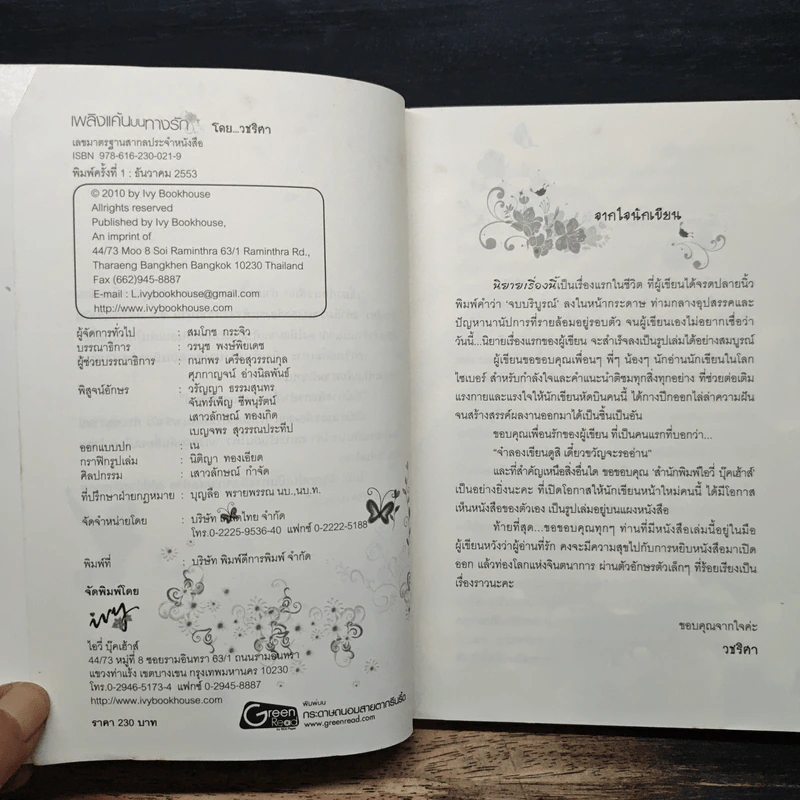 เพลิงแค้นบนทางรัก โดย...วชริศา
เลขมาตรฐานสากลประจำหนังสือ
ISBN 978-616-230-021-9
พิมพ์ครั้งที่ 1 : ธันวาคม 2553
© 2010 by Ivy Bookhouse
Allrights reserved
Published by Ivy Bookhouse,
An imprint of
44/73 Moo 8 Soi Raminthra 63/1 Raminthra Rd.,
Tharaeng Bangkhen Bangkok 10230 Thailand
Fax (662)945-8887
E-mail : L.ivybookhouse@gmail.com
http://www.ivybookhouse.com
ผู้จัดการทั่วไป : สมโภช กระจิว
บรรณาธิการ : วรนุช พงษ์พิยเดช
ผู้ช่วยบรรณาธิการ : กนกพร เครือสุวรรณกุล
ศุภกาญจน์ อ่างนิลพันธ์
พิสูจน์อักษร : วรัญญา ธรรมสุนทร
จันทร์เพ็ญ ชีพนุรัตน์
เสาวลักษณ์ ทองเกิด
เบญจพร สุวรรณประทีป
ออกแบบปก : เน
กราฟิกรูปเล่ม : นิติญา ทองเอียด
ศิลปกรรม : เสาวลักษณ์ กำจัด
ที่ปรึกษาฝ่ายกฎหมาย : บุญลือ พรายพรรณ นบ.,นบ.ท.
จัดจำหน่ายโดย : บริษัท ไทย จำกัด
โทร.0-2225-9536-40 แฟกซ์ 0-2222-5188
พิมพ์ที่ : บริษัท พิมพ์ดีการพิมพ์ จำกัด
จัดพิมพ์โดย
ivy
ไอวี่ บุ๊คเฮ้าส์
44/73 หมู่ที่ 8 ซอยรามอินทรา 63/1 ถนนรามอินทรา
แขวงท่าแร้ง เขตบางเขน กรุงเทพมหานคร 10230
โทร.0-2946-5173-4 แฟกซ์ 0-2945-8887
http://www.ivybookhouse.com
ราคา 230 บาท
Green Read
พิมพ์บน
กระดาษถนอมสายตากรีนรี้ด
www.greenread.com
จากใจนักเขียน
นิยายเรื่องนี้เป็นเรื่องแรกในชีวิต ที่ผู้เขียนได้จรดปลายนิ้ว
พิมพ์คำว่า 'จบบริบูรณ์' ลงในหน้ากระดาษ ท่ามกลางอุปสรรคและ
ปัญหานานัปการที่รายล้อมอยู่รอบตัว จนผู้เขียนเองไม่อยากเชื่อว่า
วันนี้...นิยายเรื่องแรกของผู้เขียน จะสำเร็จลงเป็นรูปเล่มได้อย่างสมบูรณ์
ผู้เขียนขอขอบคุณเพื่อนๆ พี่ๆ น้องๆ นักอ่านนักเขียนในโลก
ไซเบอร์ สำหรับกำลังใจและคำแนะนำติชมทุกสิ่งทุกอย่าง ที่ช่วยต่อเติม
แรงกายและแรงใจให้นักเขียนหัดบินคนนี้ ได้กางปีกออกไล่ล่าความฝัน
จนสร้างสรรค์ผลงานออกมาได้เป็นชิ้นเป็นอัน
ขอบคุณเพื่อนรักของผู้เขียน ที่เป็นคนแรกที่บอกว่า...
"จำลองเขียนดูสิ เดี๋ยวขวัญจะรออ่าน"
และที่สำคัญเหนือสิ่งอื่นใด ขอขอบคุณ 'สำนักพิมพ์ไอวี่ บุ๊คเฮ้าส์'
เป็นอย่างยิ่งนะคะ ที่เปิดโอกาสให้นักเขียนหน้าใหม่คนนี้ ได้มีโอกาส
เห็นหนังสือของตัวเอง เป็นรูปเล่มอยู่บนแผงหนังสือ
ท้ายที่สุด...ขอขอบคุณทุกๆ ท่านที่มีหนังสือเล่มนี้อยู่ในมือ
ผู้เขียนหวังว่าผู้อ่านที่รัก คงจะมีความสุขไปกับการหยิบหนังสือมาเปิด
ออก แล้วท่องโลกแห่งจินตนาการ ผ่านตัวอักษรตัวเล็กๆ ที่ร้อยเรียงเป็น
เรื่องราวนะคะ
ขอบคุณจากใจค่ะ
วชริศา